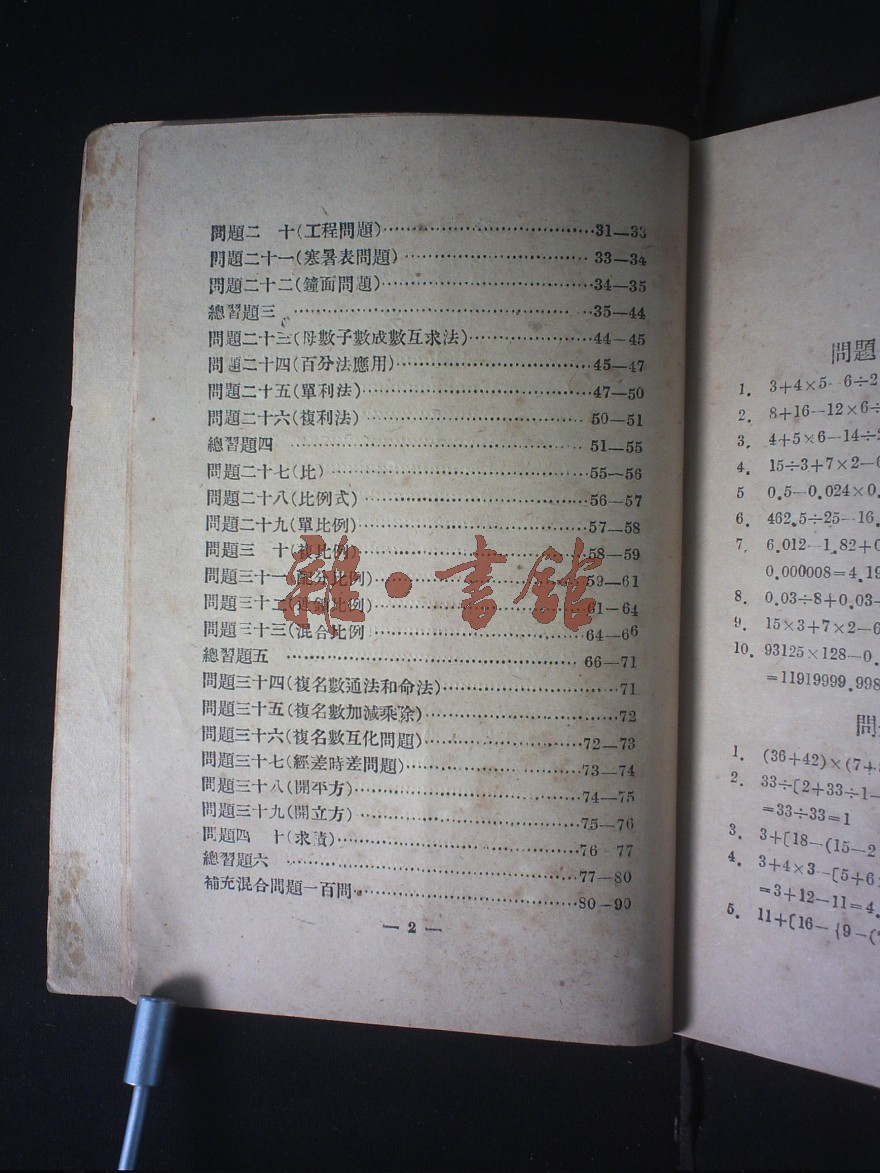 問題二　十(工程問題)……31—33
問題二十一(寒暑表問題)……33—34
問題二十二(鐘面問題)……34—35
總習題三……35—44
問題二十三(母數子數成數互求法)……44—45
問題二十四(百分法應用)……45—47
問題二十五(單利法)……47—50
問題二十六(複利法)……50—51
總習題四……51—55
問題二十七(比)……55—56
問題二十八(比例式)……56—57
問題二十九(單比例)……57—58
問題三　十(複比例)……58—59
問題三十一(配分比例)……59—61
問題三十二(連鎖比例)……61—64
問題三十三(混合比例)……64—66
總習題五……66—71
問題三十四(複名數通法和命法)……71
問題三十五(複名數加減乘除)……72
問題三十六(複名數互化問題)……72—73
問題三十七(經差時差問題)……73—74
問題三十八(開平方)……74—75
問題三十九(開立方)……75—76
問題四　十(求積)……76—77
總習題六……77—80
補充混合問題一百問……80—90
— 2 —
雜·書館
問題
1. 3+4×5—6÷2
2. 8+16—12×6÷
3. 4+5×6—14÷
4. 15÷3+7×2—
5 0.5—0.024×0.
6. 462.5÷25—16.
7. 6.012—1.82+
0.000008=4.19
8. 0.03÷8+0.03—
9. 15×3+7×2—6
10. 93125×128—0.
=11919999.998
問
1. (36+42)×(7+
2. 33÷[2+33÷1—
=33÷33=1
3. 3+[18—(15—2
4. 3+4×3—[5+6
=3+12—11=4.
5. 11+[16—{9—(